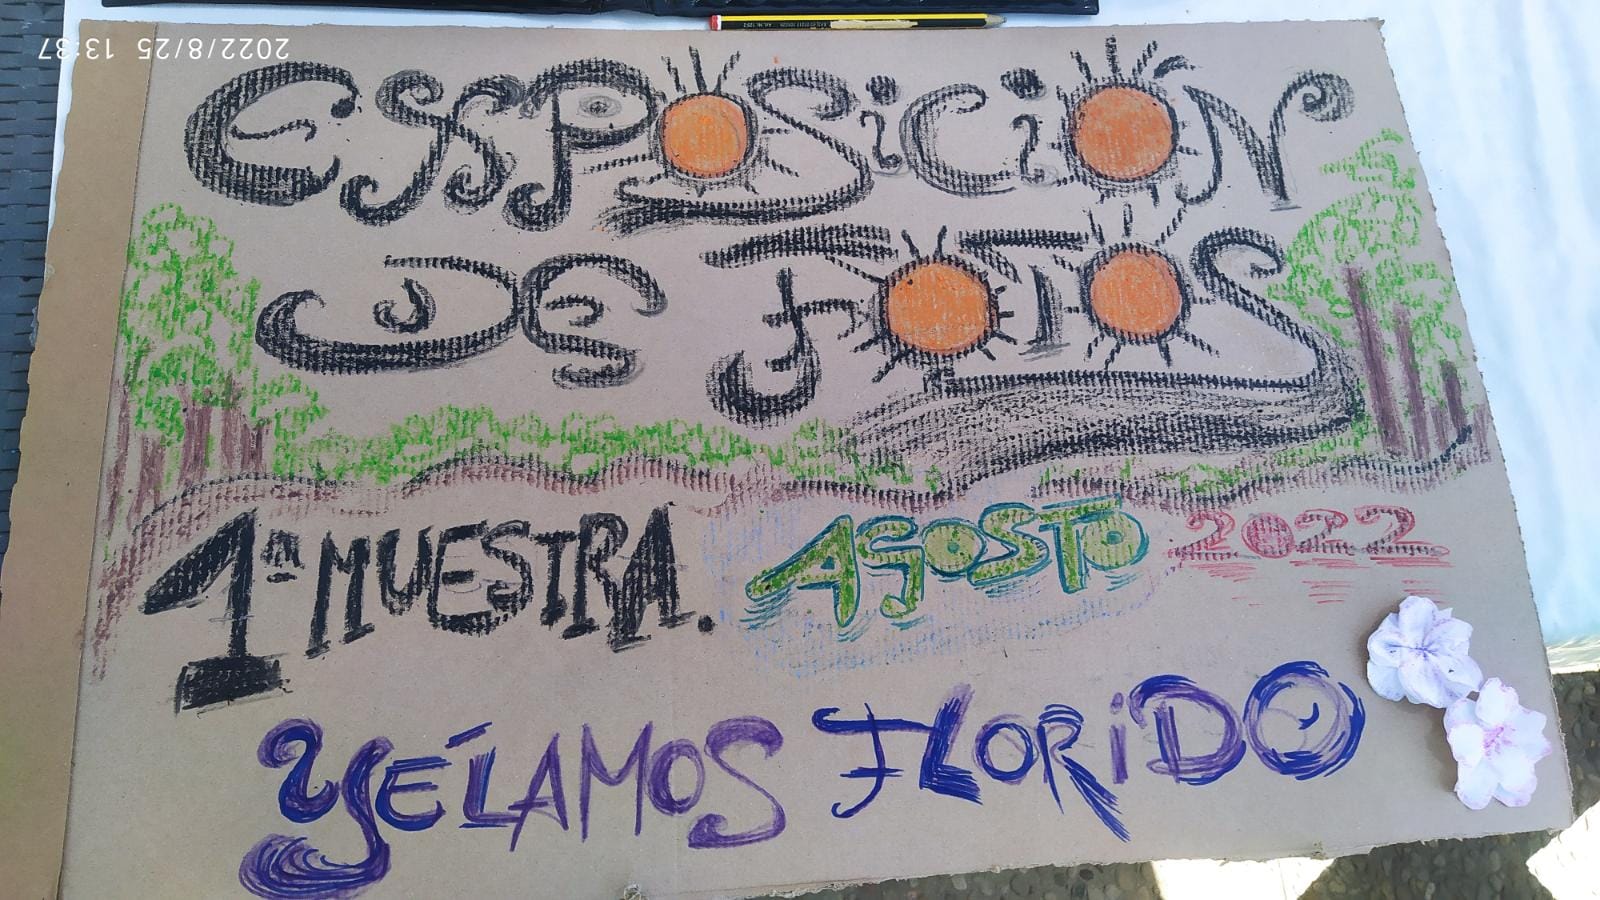 2022/8/25 13:37
EXPOSiCiÓN
DE FOTOS
1ª MUESTRA. AGOSTO 2022
YÉLAMOS FLORiDO